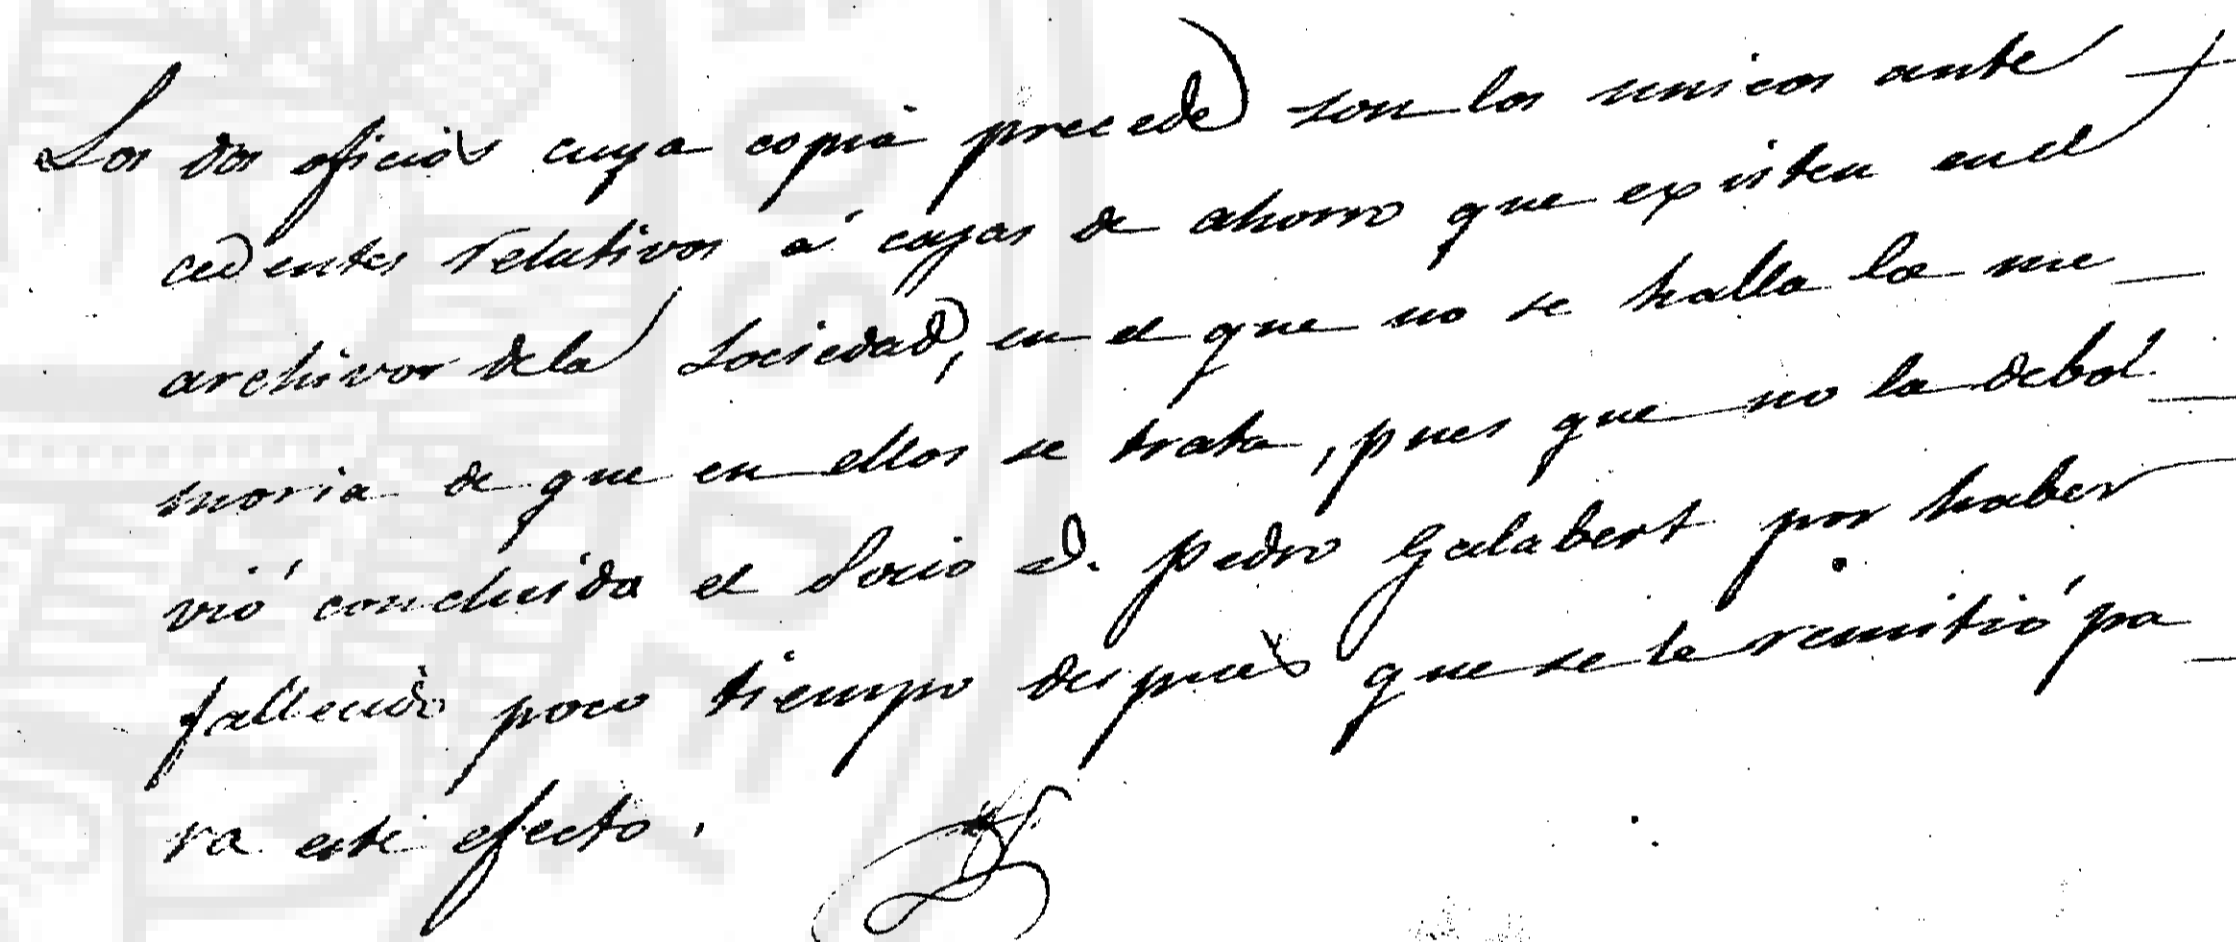 Los dos oficios cuya copia precede son los unicos ante
cedentes relativos á cajas de ahorro que existen en el
archivos de la Sociedad, en el que no se halla la me-
moria de que en ellos se trata, pues que no la debol-
vió concluida el Socio D. Pedro Galabert por haber
fallecido poco tiempo despues que se le remitió pa-
ra este efecto.